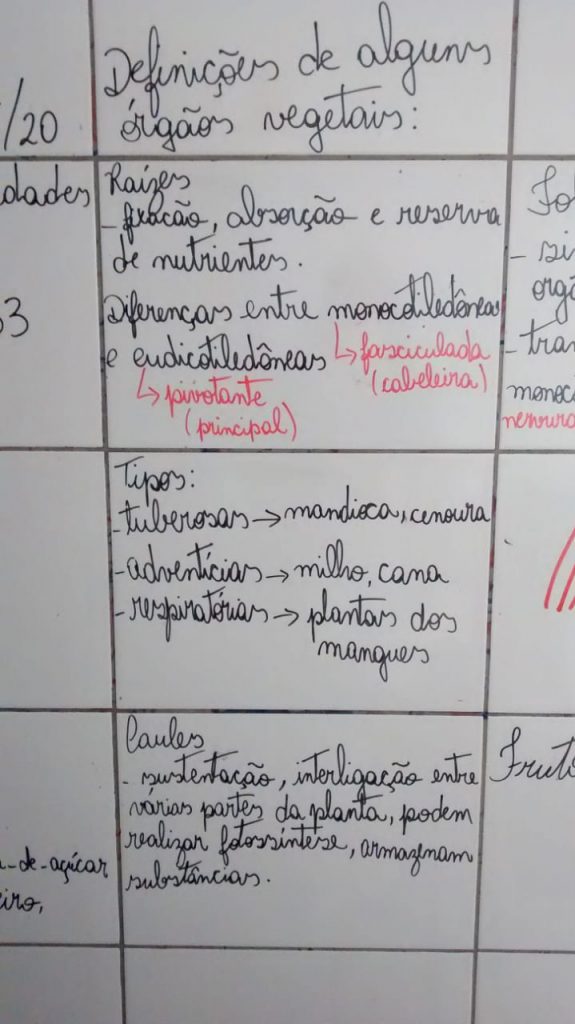 Definições de alguns
órgãos vegetais:
/20
dades
33
Raízes
- fixação, absorção e reserva
de nutrientes.
Diferenças entre monocotiledôneas
e eudicotiledôneas ↳ fasciculada
(cabeleira)
↳ pivotante
(principal)
Tipos:
- tuberosas → mandioca, cenoura
- adventícias → milho, cana
- respiratórias → plantas dos
mangues
Caules
- sustentação, interligação entre
várias partes da planta, podem
realizar fotossíntese, armazenam
substâncias.
-de-açúcar
eiro,
Fol
- si
orgâ
- tran
monoco
nervura
Fruto